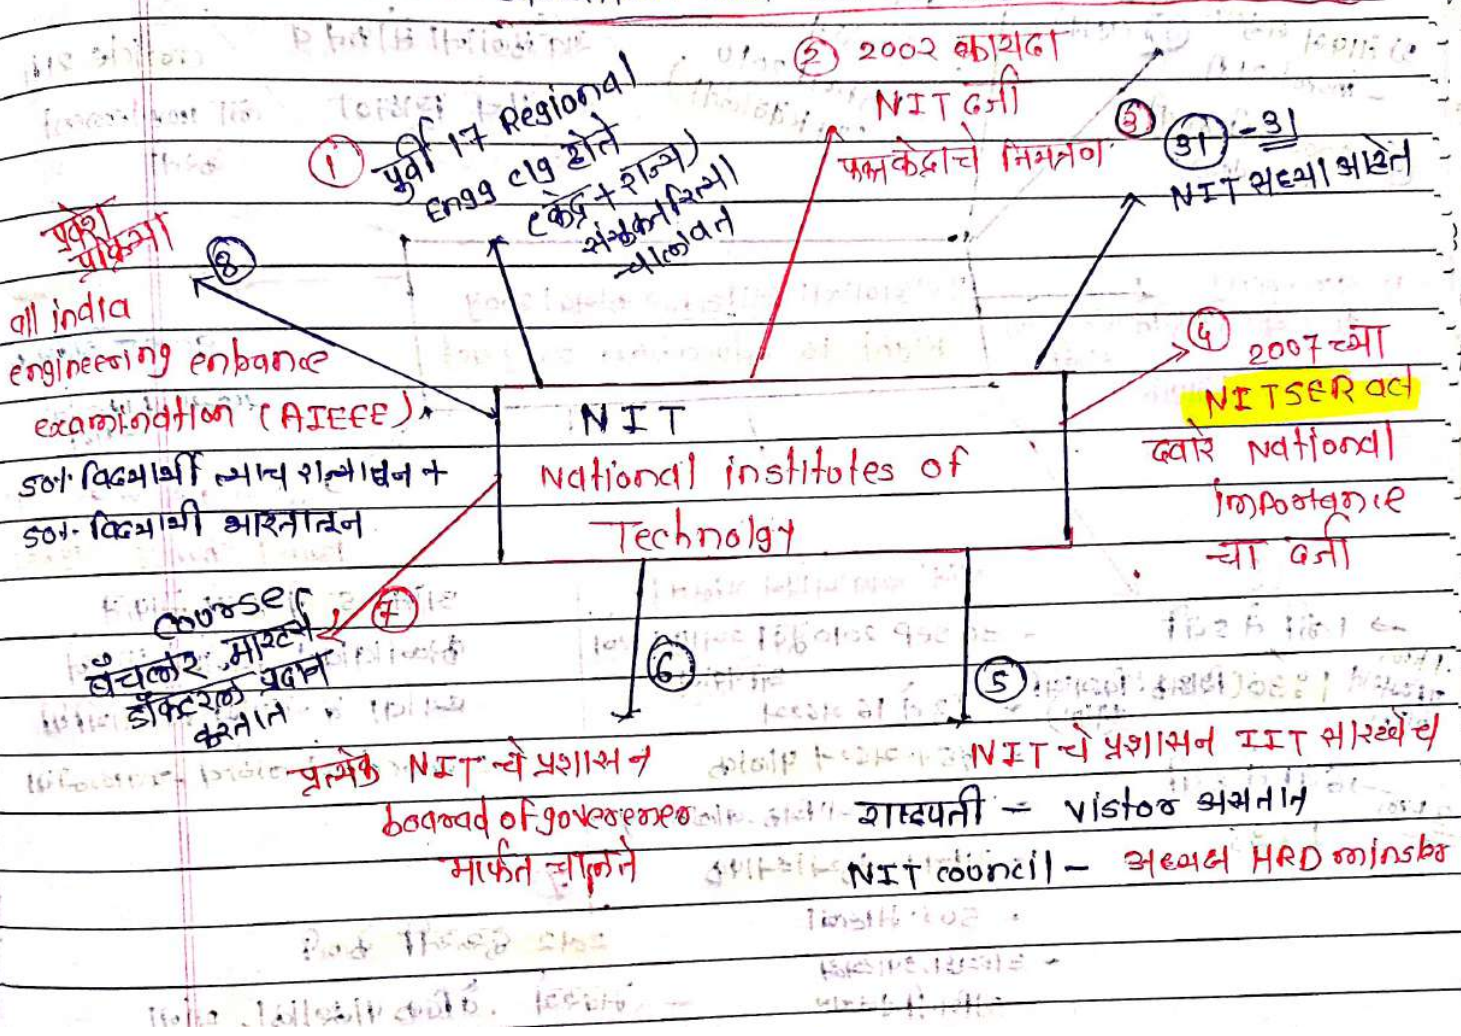 NIT
National institutes of
Technolgy
①
पुर्वी 17 Regional
Engg clg होते
(केंद्र + राज्य)
संयुक्तरित्या
चालवत
② 2002 कायदा
NIT दर्जा
फक्त केंद्राचे नियंत्रण
③ 31 - 31
NIT सध्या आहेत
④
2007 च्या
NITSER act
द्वारे National
importance
चा दर्जा
⑤
NIT चे प्रशासन IIT सारखेच
राष्ट्रपती - vistor असतात
NIT council - अध्यक्ष HRD minster
⑥
प्रत्येक NIT चे प्रशासन
board of goverener
मार्फत चालते
⑦
courses
बॅचलर, मास्टर्स
डॉक्टरल प्रदान
करतात
⑧
प्रवेश
प्रक्रिया
all india
engineering entrance
examination (AIEEE)
50% विद्यार्थी त्याच राज्यातून +
50% विद्यार्थी भारतातून